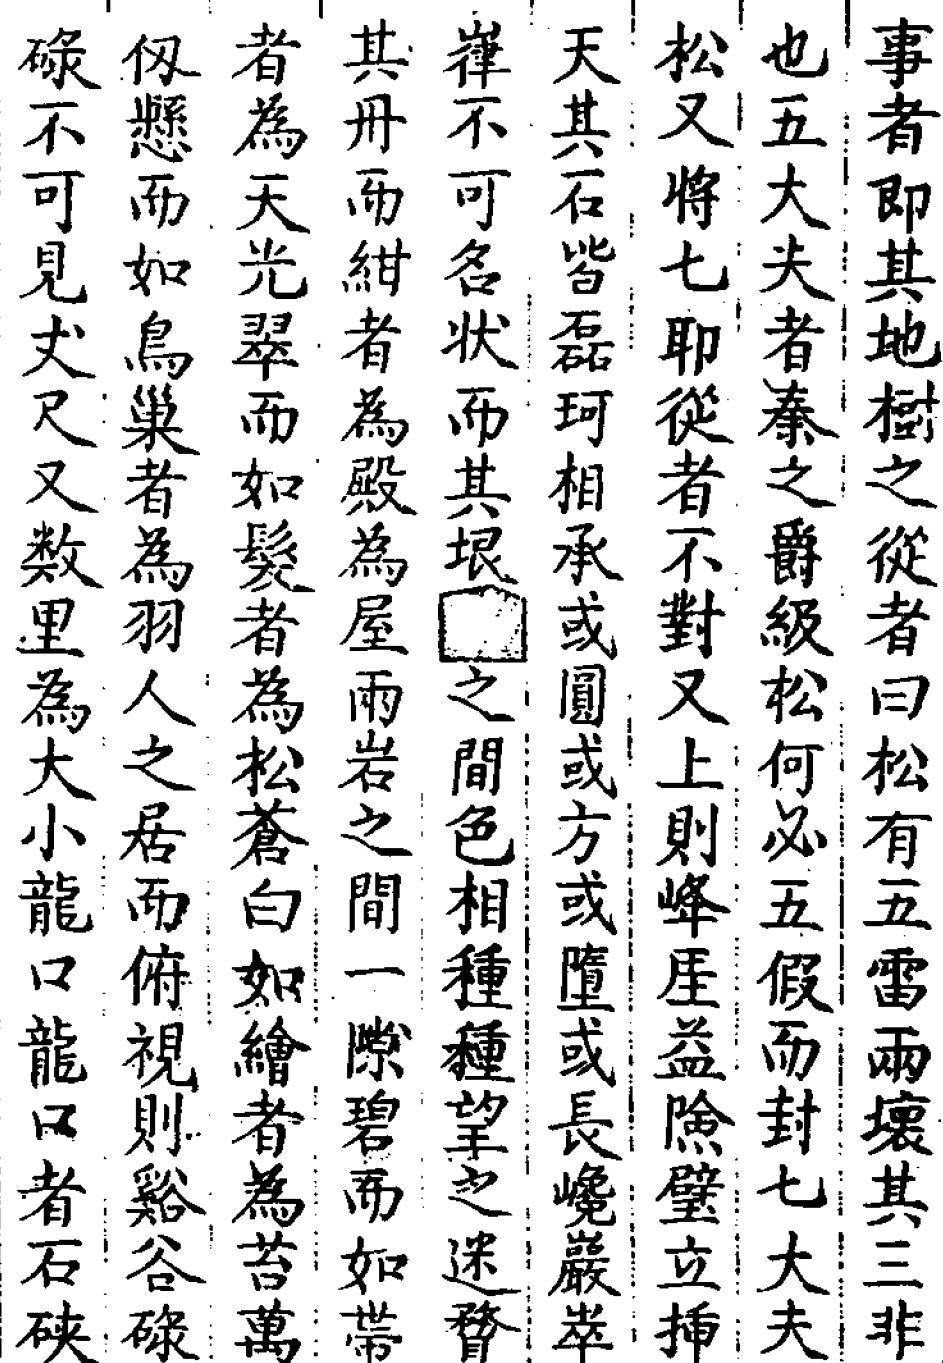 事者即其地樹之從者曰松有五雷兩壞其三非
也五大夫者秦之爵級松何必五假而封七大夫
松又將七耶從者不對又上則峰厓益險壁立揷
天其石皆磊珂相承或圓或方或墮或長巉巖崒
嵂不可名状而其垠之間色相種種望之迷瞀
其丹而紺者為殿為屋兩岩之間一隙碧而如帶
者為天光翠而如髮者為松蒼白如繪者為苔萬
仭懸而如鳥巢者為羽人之居而俯視則谿谷碌
碌不可見丈尺又数里為大小龍口龍口者石硤